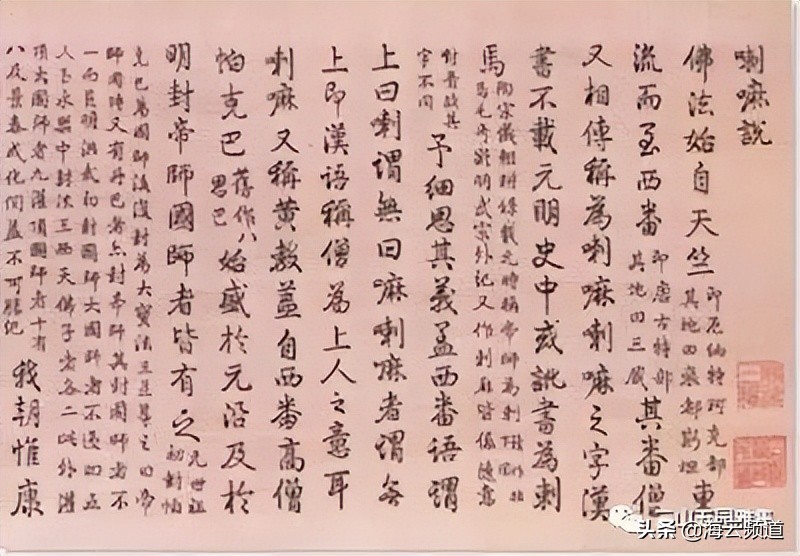 喇嘛說
佛法始自天竺
即厄納特珂克部
其地曰衮都斯坦
東
流而至西番
即唐古特部
其地曰三藏
其番僧
又相傳稱為喇嘛喇嘛之字漢
書不載元明史中或訛書為剌
馬
陶宗儀輟耕錄載元時稱帝師為剌
馬毛奇齡明武宗外紀又作剌麻皆係隨意
對音故其
字不同
予細思其義蓋西番語謂
上曰喇謂無曰嘛喇嘛者謂無
上即漢語稱僧為上人之意耳
喇嘛又稱黃教蓋自西番高僧
帕克巴
舊作八
思巴
始盛於元沿及於
明封帝師國師者皆有之
元世祖
初封帕
克巴為國師後復封為大寶法王並尊之曰帝
師同時又有丹巴者亦封帝師其封國師者不
一而足明洪武初封國師大國師者不過四五
人至永樂中封法王西天佛子者各二此外灌
頂大國師者九灌頂國師者十有
八及景泰成化間益不可勝紀
我朝惟康
头条 @海云频道